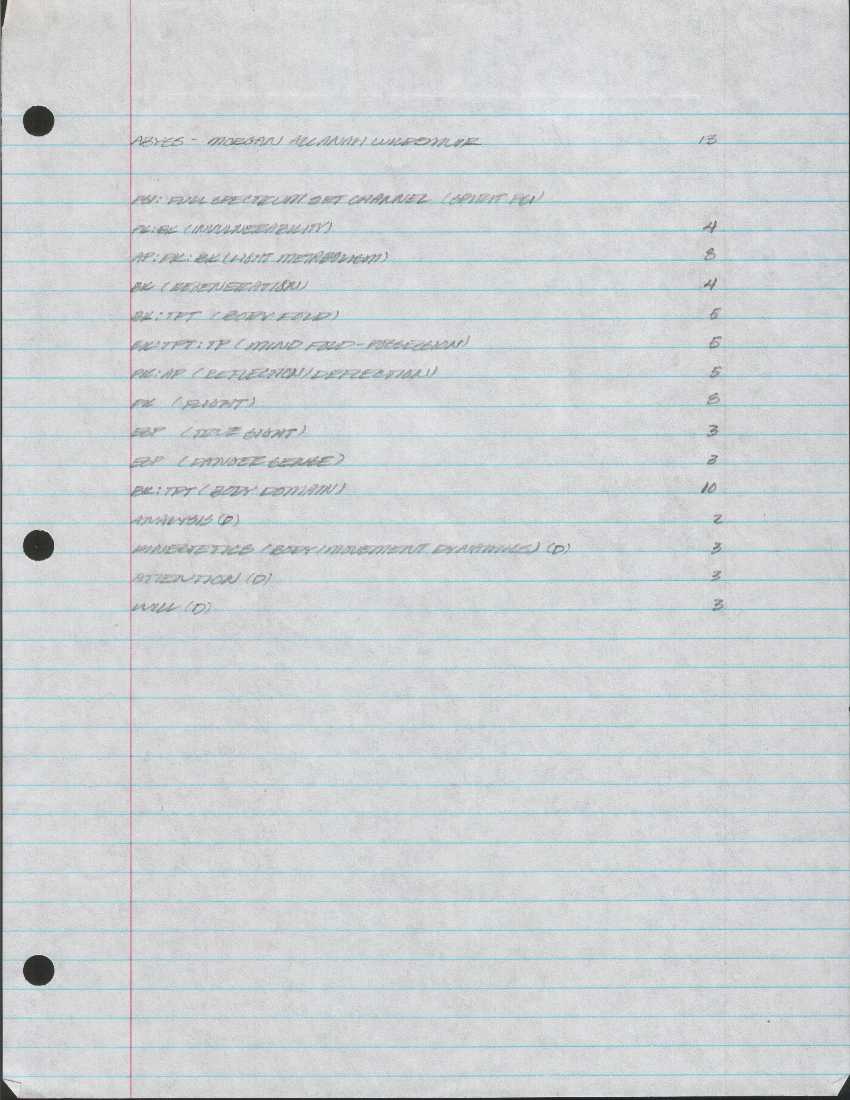 ABYSS - MORGAN ALLANAH 13
PSI: FULL SPECTRUM SET CHANNEL (SPIRIT PSI)
PK:BK (INVULNERABILITY) 4
AP:PK:BK (LIGHT METABOLISM) 8
BK (REGENERATION) 4
BK:TPT (BODY FOLD) 5
BK:TPT:TP (MIND FOLD-POSSESSION) 5
PK:AP (REFLECTION/DEFLECTION) 5
PK (FLIGHT) 8
ESP (TRUE SIGHT) 3
ESP (DANGER SENSE) 3
BK:TPT (BODY DOMAIN) 10
ANALYSIS (D) 2
KINESTETICS (BODY/MOVEMENT DYNAMICS) (D) 3
ATTENTION (D) 3
WILL (D) 3